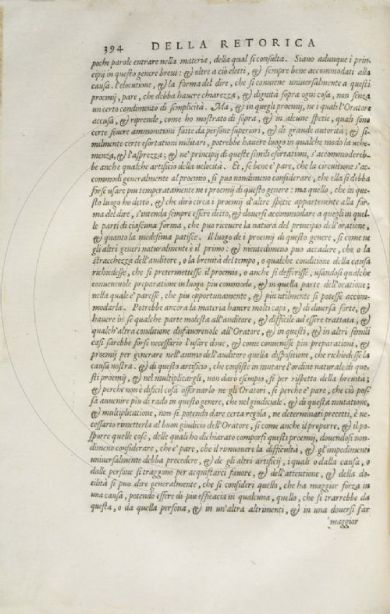 394 DELLA RETORICA
poche parole entrare nella materia, della qual si consulta. Siano adunque i prin-
cipij in questo genere breui: & oltre a ciò eletti, & sempre bene accommodati alla
causa. l'elocutione, & la forma del dire, che si conuiene uniuersalmente a questi
proemij, pare, che debba hauere chiarezza, & dignità sopra ogni cosa, non senza
un certo condimento di semplicità. Ma, & in quegli proemij, ne i quali l'Oratore
accusa, & riprende, come ho mostrato di sopra, & in alcune spetie, quali sono
certe scriue ammonitioni fatte da persone superiori, & di grande autorità; & si-
milmente certe esortationi militari, potrebbe hauere luogo in qualche modo la uehe-
menza, & l'asprezza; & ne' principij di queste simili esortationi, s'accommoderéb-
be anche qualche artificio della uelocità. Et, se bene è pare, che la circuitione s'ac-
commodi generalmente al proemio, si può nondimeno considerare, che ella si debba
forse usare più temperatamente ne i proemij di questo genere: ma quello, che in que-
sto luogo ho ditto, & che dirò circa i proemij d'altre spetie appartenente alla for-
ma del dire, s'intenda sempre essere ditto, & douersi accommodare a quegli in quel-
le parti di ciascuna forma, che può riceuere la natura del principio dell'oratione,
& quanto la medesima patisce. Il luogo de i proemij di questo genere, si come ne
gli altri generi naturalmente è il primo: & nondimeno può accadere, che o la
stracchezza dell'auditore, o la breuità del tempo, o qualche conditione della causa
richiedesse, che si pretermettesse il proemio, o anche si differisse, usandosi qualche
conueneuole preparatione in luogo più commodo, & in quella parte dell'oratione;
nella quale è paresse, che più oportunamente, & più utilmente si potesse accom-
modarla. Potrebbe ancora la materia hauere molti capi, & di diuersa sorte, &
hauere in se qualche parte molesta all'auditore, & difficile ad essere trattata, &
qualch'altra conditione disfauoreuole all'Oratore, & in questi, & in altri simili
casi sarebbe forse necessario l'usare doue, & come conuenisse più preparationi, &
proemij per generare nell'animo dell'auditore quella dispositione, che richiedesse la
causa nostra. & di questo artificio, che consiste in mutare l'ordine naturale de que-
sti proemij, & nel multiplicargli, non darò esempio, si per rispetto della breuità;
& perche non è difficil cosa osseruarlo ne gli Oratori, si perche è pare, che ciò pos-
sa auuenire più di rado in questo genere, che nel giudiciale. & di questa mutatione,
& multiplicatione, non si potendo dare certa regola, ne determinati precetti, è ne-
cessario rimetterla al buon giudicio dell'Oratore, si come anche il preporre, & il po-
sporre quelle cose, delle quali ho dichiarato comporsi questi proemij, douendosi non-
dimeno considerare, che è pare, che il rimouere la difficultà, & gl'impedimenti
uniuersalmente debba precedere; & de gli altri artificij, i quali o dalla causa, o
dalle persone si traggono per acquistarci fauore, & dell'attentione, & della do-
cilità si può dire generalmente, che si consideri quello, che ha maggior forza in
una causa, potendo essere di più efficacia in qualcuna, quello, che si trarrebbe da
questa, o da quella persona, & in un'altra altrimenti, & in una diuersi far
maggior